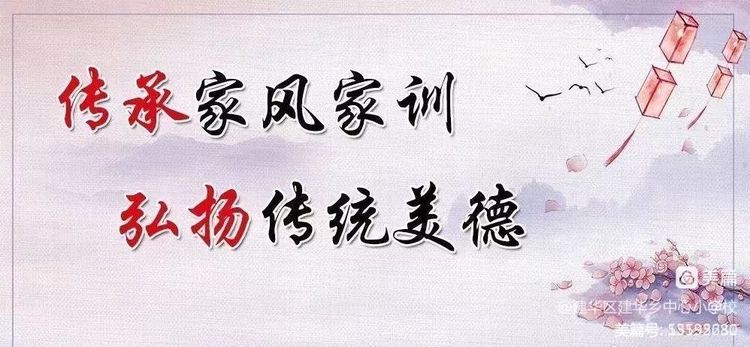 传承家风家训
弘扬传统美德
美篇
@建华区建华乡中心小学校
美篇号:59599080